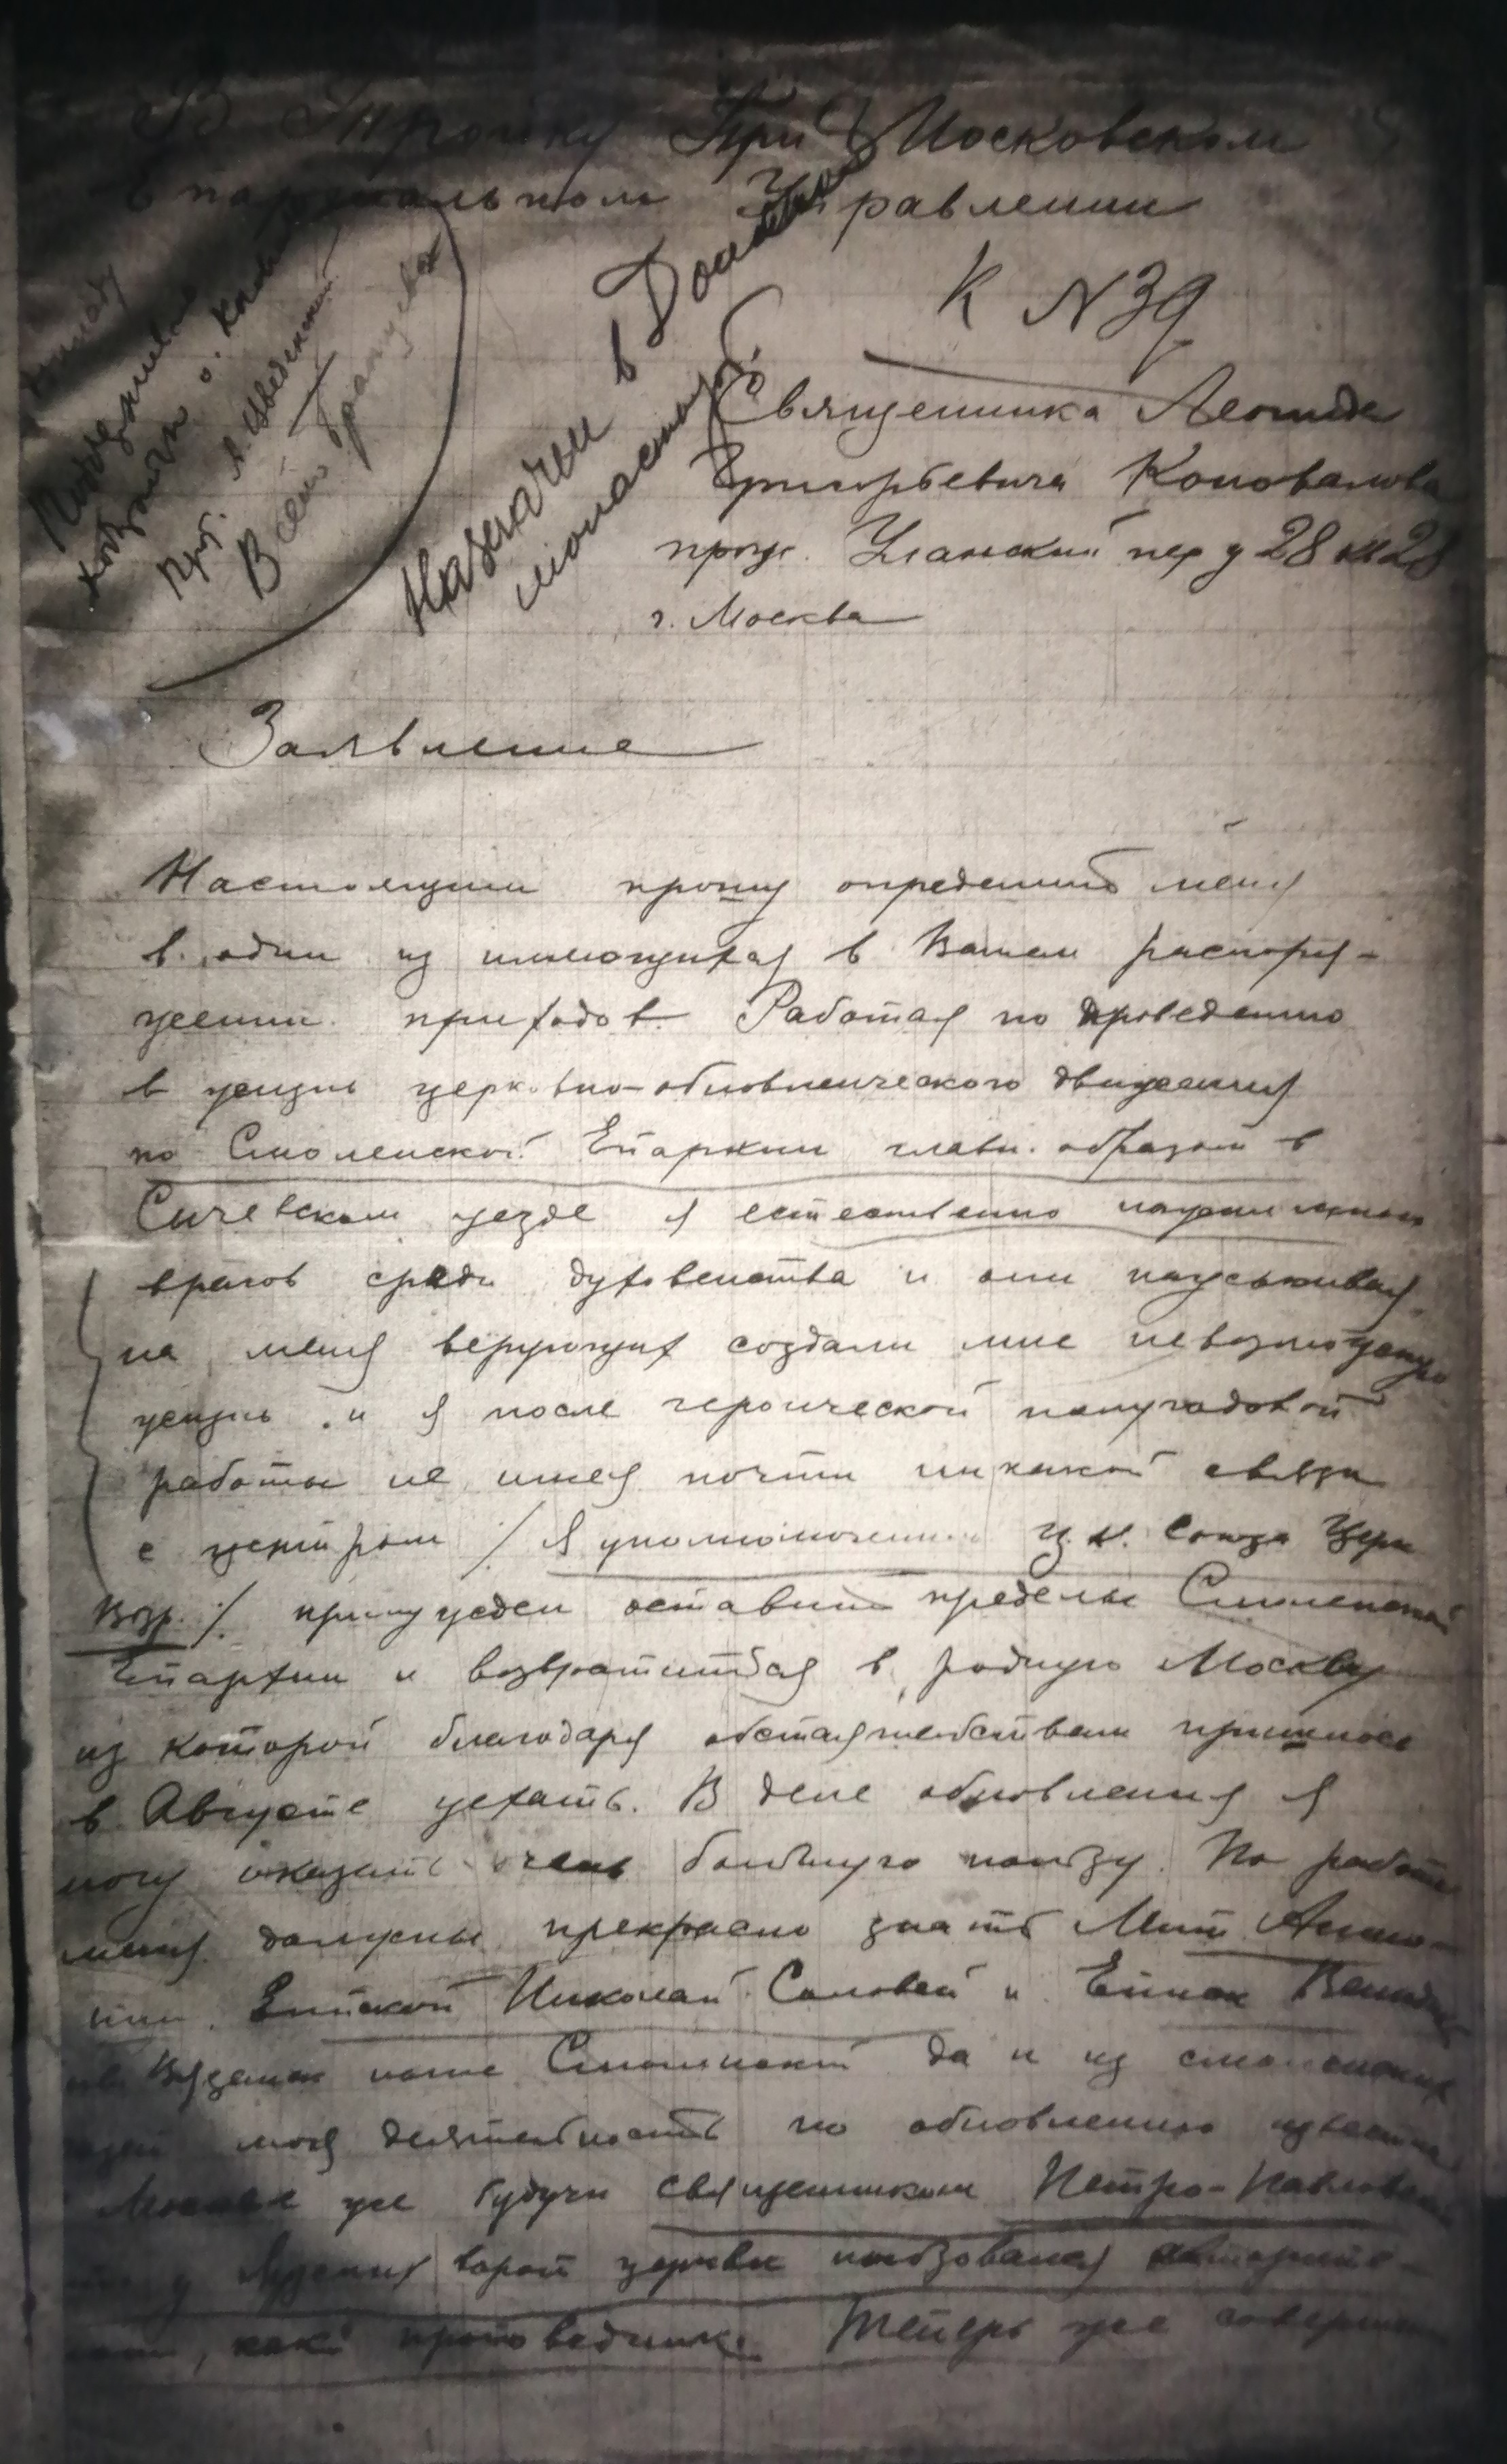 В Тройку При Московском
Епархиальном Управлении
К N 39
Священника Леонида
Григорьевича Коновалова
прож. Уланский пер д 28 кв 28
г. Москва
Поддерживаю
ходатайство о.
Прот. А. Введенский
Назначен в Донской
монастырь
Заявление
Настоящим прошу определить меня
в один из имеющихся в Вашем распоря-
жении приходов. Работая по проведению
в жизнь церковно-обновленческого движения
по Смоленской Епархии главн. образом в
Сычевском уезде я естественно
врагов среди духовенства и они науськивая
на меня верующих создали мне невозможную
жизнь. и я после героической полугодовой
работы не имея почти никакой связи
с центром /Я уполномоченный Ц.К. Союза Церк
Возр./ принужден оставить пределы Смоленской
Епархии и возвратиться в родную Москву
из которой благодаря обстоятельствам пришлось
в Августе уехать. В деле обновления я
могу оказать очень большую пользу. По работе
меня должны прекрасно знать Мит. Антo-
нин. Епископ Николай Соловей и Епископ
ныне Смоленский да и из смоленских
моя деятельность по обновлению
уже будучи священником Петро-Павловской
у Яузских ворот церкви пользовался авторите-
том, как проповедник. Теперь уже